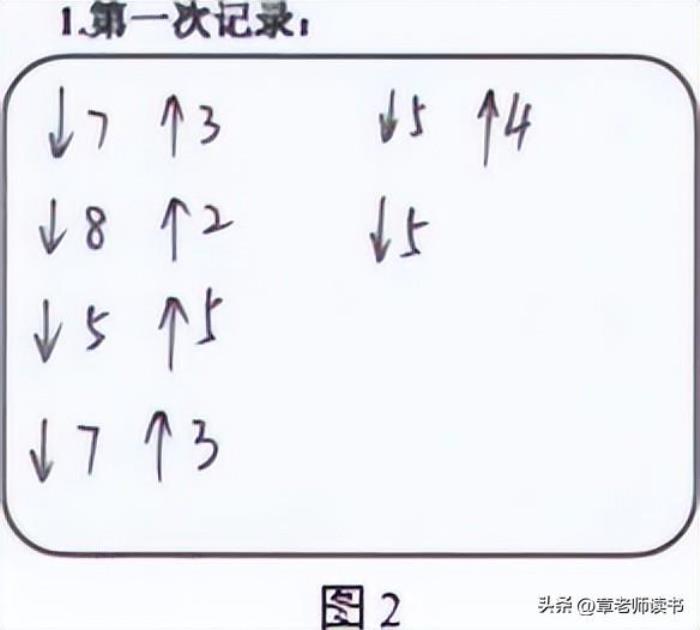 1.第一次记录：
↓7 ↑3 ↓5 ↑4
↓8 ↑2 ↓5
↓5 ↑5
↓7 ↑3
图2
头条 @章老师读书